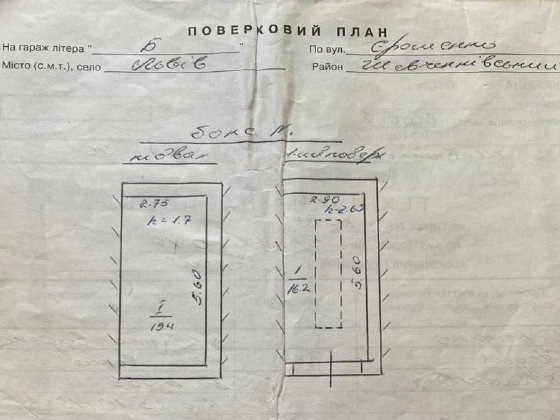 ПОВЕРХОВИЙ ПЛАН
На гараж літера " Б " По вул. Єрошенко
Місто (с.м.т.), село Львів Район Шевченківський
бокс N.
підвал 1ший поверх
2.75 2.90
h=1.7 h=2.63
5.60 5.60
I 1
15.4 16.2